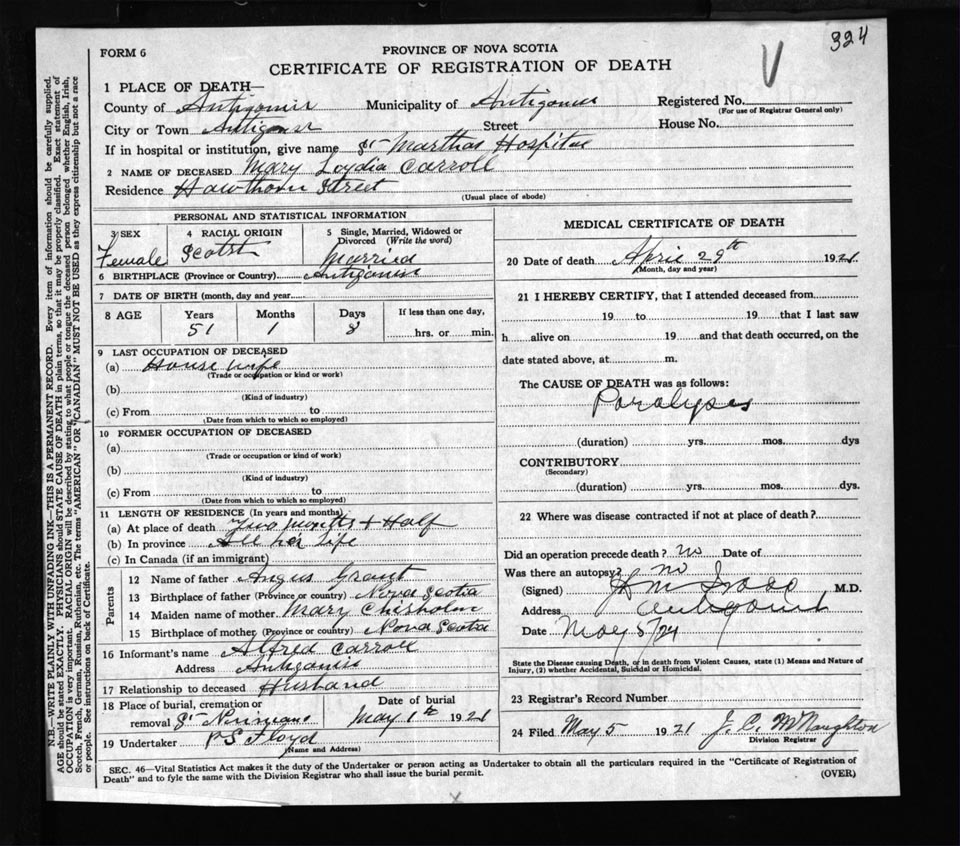 324
V
FORM 6
PROVINCE OF NOVA SCOTIA
CERTIFICATE OF REGISTRATION OF DEATH
1 PLACE OF DEATH—
County of Antigonish Municipality of Antigonish Registered No.
(For use of Registrar General only)
City or Town Antigonish Street House No.
If in hospital or institution, give name St Marthas Hospital
2 NAME OF DECEASED Mary Loydia Carroll
Residence Hawthorn Street
(Usual place of abode)
PERSONAL AND STATISTICAL INFORMATION
3 SEX 4 RACIAL ORIGIN 5 Single, Married, Widowed or Divorced (Write the word)
Female Scotsh Married
6 BIRTHPLACE (Province or Country) Antigonish
7 DATE OF BIRTH (month, day and year)
8 AGE Years Months Days If less than one day,
51 1 8 hrs. or min.
9 LAST OCCUPATION OF DECEASED
(a) House wife
(Trade or occupation or kind or work)
(b)
(Kind of industry)
(c) From to
(Date from which to which so employed)
10 FORMER OCCUPATION OF DECEASED
(a)
(Trade or occupation or kind of work)
(b)
(Kind of industry)
(c) From to
(Date from which to which so employed)
11 LENGTH OF RESIDENCE (In years and months)
(a) At place of death Two months + Half
(b) In province All her Life
(c) In Canada (if an immigrant)
Parents
12 Name of father Angus Grant
13 Birthplace of father (Province or country) Nova Scotia
14 Maiden name of mother Mary Chisholm
15 Birthplace of mother (Province or country) Nova Scotia
16 Informant's name Alfred Carroll
Address Antigonish
17 Relationship to deceased Husband
18 Place of burial, cremation or Date of burial
removal St Ninians May 1st 1921
19 Undertaker P S Floyd
(Name and Address)
MEDICAL CERTIFICATE OF DEATH
20 Date of death April 29th 1921
(Month, day and year)
21 I HEREBY CERTIFY, that I attended deceased from
19 to 19 that I last saw
h alive on 19 and that death occurred, on the
date stated above, at m.
The CAUSE OF DEATH was as follows:
Paralysis
(duration) yrs. mos. dys
CONTRIBUTORY
(Secondary)
(duration) yrs. mos. dys.
22 Where was disease contracted if not at place of death?
Did an operation precede death? no Date of
Was there an autopsy? no
(Signed) M.D.
Address Antigonish
Date May 5/21
State the Disease causing Death, or in death from Violent Causes, state (1) Means and Nature of
Injury, (2) whether Accidental, Suicidal or Homicidal.
23 Registrar's Record Number
24 Filed May 5 1921 J. C. McNaughton
Division Registrar
SEC. 46—Vital Statistics Act makes it the duty of the Undertaker or person acting as Undertaker to obtain all the particulars required in the "Certificate of Registration of
Death" and to fyle the same with the Division Registrar who shall issue the burial permit.
(OVER)
N.B.—WRITE PLAINLY WITH UNFADING INK—THIS IS A PERMANENT RECORD. Every item of information should be carefully supplied.
AGE should be stated EXACTLY. PHYSICIANS should STATE CAUSE OF DEATH in plain terms, so that it may be properly classified. Exact statement of
OCCUPATION is very important. RACIAL ORIGIN will be described by stating to what people or tongue the deceased person belonged whether English, Irish,
Scotch, French, German, Russian, Ruthenian, etc. The terms "AMERICAN" OR "CANADIAN" MUST NOT BE USED as they express citizenship but not a race
or people. See instructions on back of Certificate.